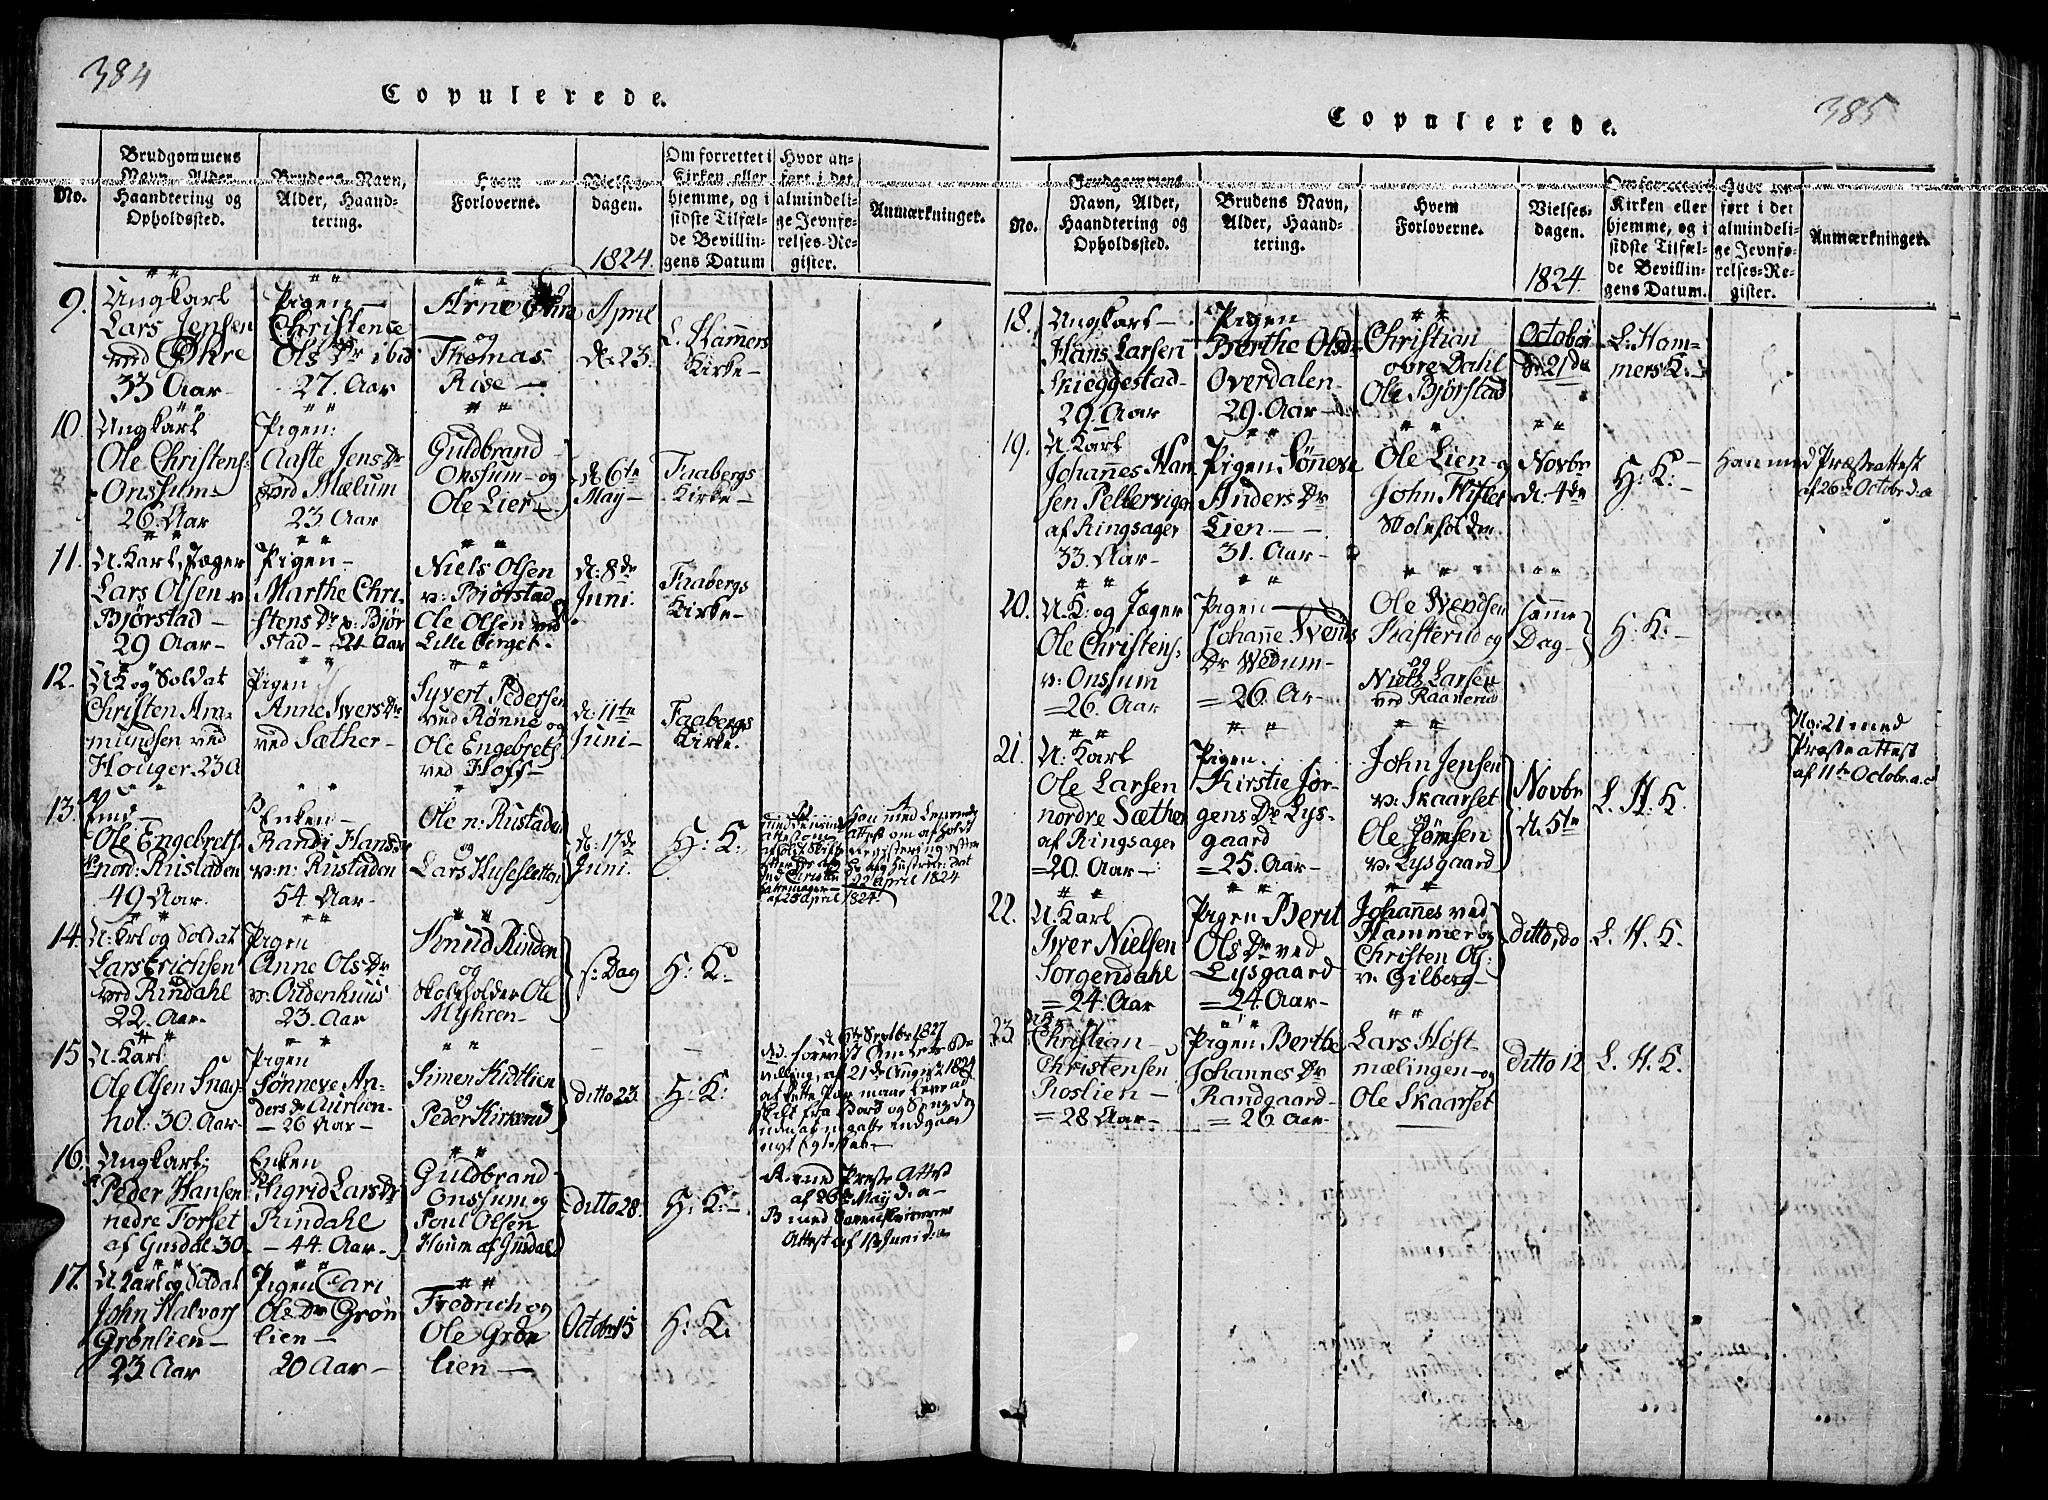 384
Copulerede.
No.
Brudgommens
Navn, Alder,
Haandtering og
Opholdssted.
Brudens Navn,
Alder, Haand-
tering.
Hvem
Forloverne.
Vielses-
dagen.
1824.
Om forrettet i
Kirken eller
hjemme, og i
sidste Tilfæl-
de Bevillin-
gens Datum
Hvor an-
ført i det
almindeli-
ge Jevnfø-
relses-Re-
gister.
Anmærkninger.
9.
Ungkarl
Lars Jensen
ved Øhre
33 Aar
Pigen
Christence
Ols Dr ibid
27. Aar
Arne Øhre
og
Thomas
Rise
April
d. 23.
L. Hammers
Kirke
10
Ungkarl
Ole Christens:
Onssum
26. Aar
Pigen:
Aaste Jens Dr
ved Mælum
23 Aar
Guldbrand
Onssum og
Ole Lier
d. 6te
May
Faabergs
Kirke
11.
U. Karl, Jæger
Lars Olsen v
Bjørstad
29 Aar
Pigen
Marthe Chri-
stens Dr v: Bjør
stad 21 Aar
Niels Olsen
v: Bjørstad
Ole Olsen ved
Lilleberget.
d. 8de
Juni.
Faabergs
Kirke
12.
U.K. og Soldat
Christen Am-
mundsen ved
Houger 23 A
Pigen
Anne Ivers Dr
ved Sæther
Syvert Pedersen
ved Rønne og
Ole Engebrets
ved Hoff
d. 11te
Juni
Faabergs
Kirke.
13.
Ole Engebrets.
nord: Rustaden
49 Aar.
Enken
Randi Hans Dr
v: n: Rustaden
54. Aar
Ole n: Rustaden
og
Lars Husesletten
d: 17de
Juni.
H: K:
22 april 1824
af 25 april 1824.
14.
U. Krl og Soldat
Lars Erichsen
ved Rindahl
22. Aar.
Pigen
Anne Ols Dr
v: Oudenhuus
23. Aar
Knud Rinden
og
Skoleholder Ole
Myhren
s: Dag
H: K:
15
U. Karl
Ole Olsen Snag
hol: 30. Aar
Pigen
Sønneve An-
ders Dr Aurlien
26 Aar
Simen Kidtlien
og
Peder Kirkerud
Ditto 23.
H: K:
d 6te Septbr 1827
villing, af 21de August 1827
at dette Par maae leve ad
skilt fra Bord og Seng, dog
uden at maatte indgaae
nyt Egteskab
16.
Ungkarl;
Peder Hansen
nedre Forset
af Gusdal 30
Enken
Sigrid Lars Dr
Rindahl
44. Aar
Guldbrand
Onssum og
Poul Olsen
Houm af Gusdal
Ditto 28.
H: K:
A. med Præste Attest
af 26 May d. a
B med Samefrueness
Attest af 1te Juni d. a
17.
U. Karl og Soldat
John Halvors
Grønlien
23 Aar
Pigen Cari
Ols Dr Grøn
lien
20 Aar
Fredrich og
Ole Grøn
lien
Octobr 15
H: K.
385
Copulerede.
No.
Brudgommens
Navn, Alder,
Haandtering og
Opholdssted.
Brudens Navn,
Alder, Haand-
tering.
Hvem
Forloverne.
Vielses-
dagen.
1824.
Om forrettet i
Kirken eller
hjemme, og i
sidste Tilfæl-
de Bevillin-
gens Datum.
Hvor an-
ført i det
almindeli-
ge Jevnfø-
relses-Re-
gister.
Anmærkninger.
18.
Ungkarl
Hans Larsen
Skieggestad
29. Aar
Pigen
Berthe Olsdr
Overdalen
29. Aar
Christian
øvre Dahl
Ole Bjørstad
October
d: 21de
L: Ham-
mers K:
19.
U. Karl
Johannes Han
sen Pellerviger
af Ringsager
33. Aar
Pigen Sønneve
Anders Dr
Lien
31. Aar
Ole Lien og
John Hifles
Skoleholder
Novbr
d. 4de
H: K:
Han med Præsteattest
af 26de Octobr d: a
20.
U. K: og Jæger
Ole Christens:
v: Onssum
26. Aar
Pigen
Johanne Svends
Dr Wedum
26. Ar
Ole Svendsen
og
Niels Larsen
ved Raanerud
samme
Dag
H: K:
21.
U. Karl
Ole Larsen
nordre Sæther
af Ringsager
20. Aar
Pigen.
Kirstie Jør-
gens Dr Lys-
gaard
25. Aar
John Jensen
v: Skaarset
og
Ole Jensen
v. Lysgaard
Novbr
d. 5te
L. H. K.
No: 21 med
Præsteattest
af 11te Octobr. a. c
22.
U. Karl
Iver Nielsen
Sorgendahl
24. Aar
Pigen Berit
Ols Dr ved
Lysgaard
24. Aar
Johannes ved
Hammer og
Christen Ols:
v. Gilberg
Ditto, do
L. H. K.
23.
Christian
Christensen
Roslien
28 Aar
Pigen Berthe
Johannes Dr
Randgaard
26. Aar
Lars Høst
mælingen og
Ole Skaarset
Ditto 12
L. H. K.